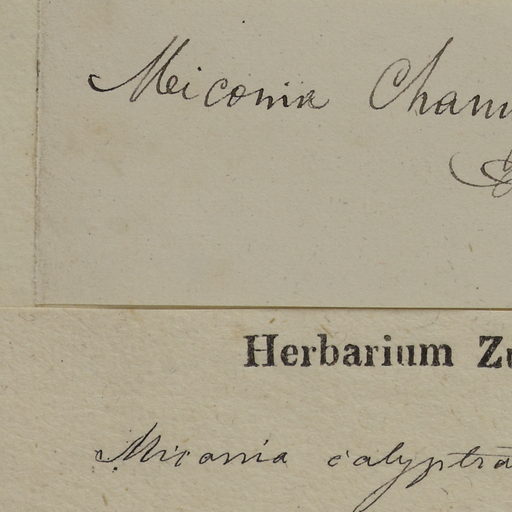 Miconia Cham
Herbarium Zu
Miconia calyptra